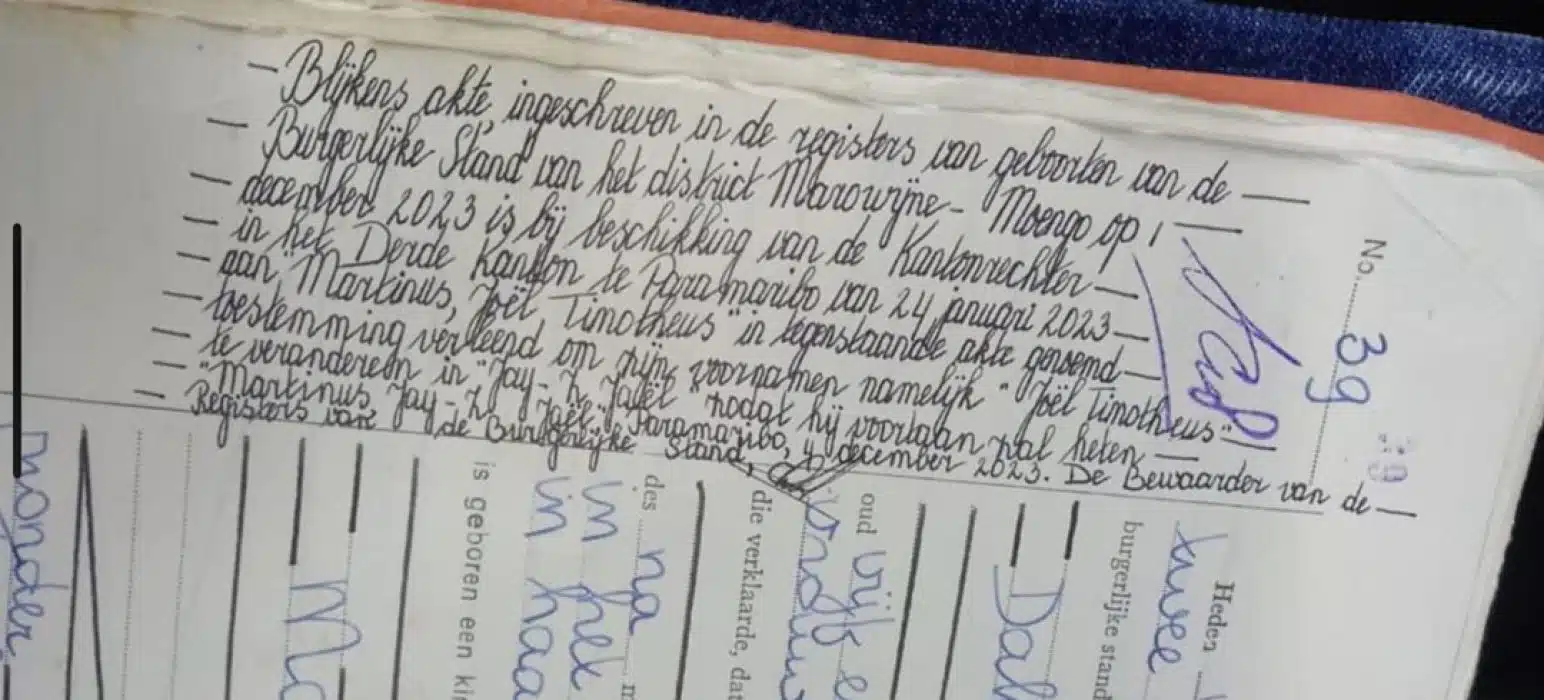 — Blijkens akte, ingeschreven in de registers van geboorten van de —
— Burgerlijke Stand van het district Marowijne - Moengo op 1 —
— december 2023 is bij beschikking van de Kantonrechter —
— in het Derde Kanton te Paramaribo van 24 januari 2023 —
— aan "Martinus, Joël Timotheus" in tegenstaande akte genoemd —
— toestemming verleend om zijn voornamen namelijk "Joël Timotheus" —
— te veranderen in "Jay-Z, Jaël" zodat hij voortaan zal heten —
— "Martinus, Jay-Z, Jaël" Paramaribo, 4 december 2023. De Bewaarder van de —
Registers van de Burgerlijke Stand,
No. 39
39
Heden
twee
burgerlijke stand
Dah
oud vijf e
die verklaarde, dat
des na m
in het
in haa
is geboren een ki
Ma